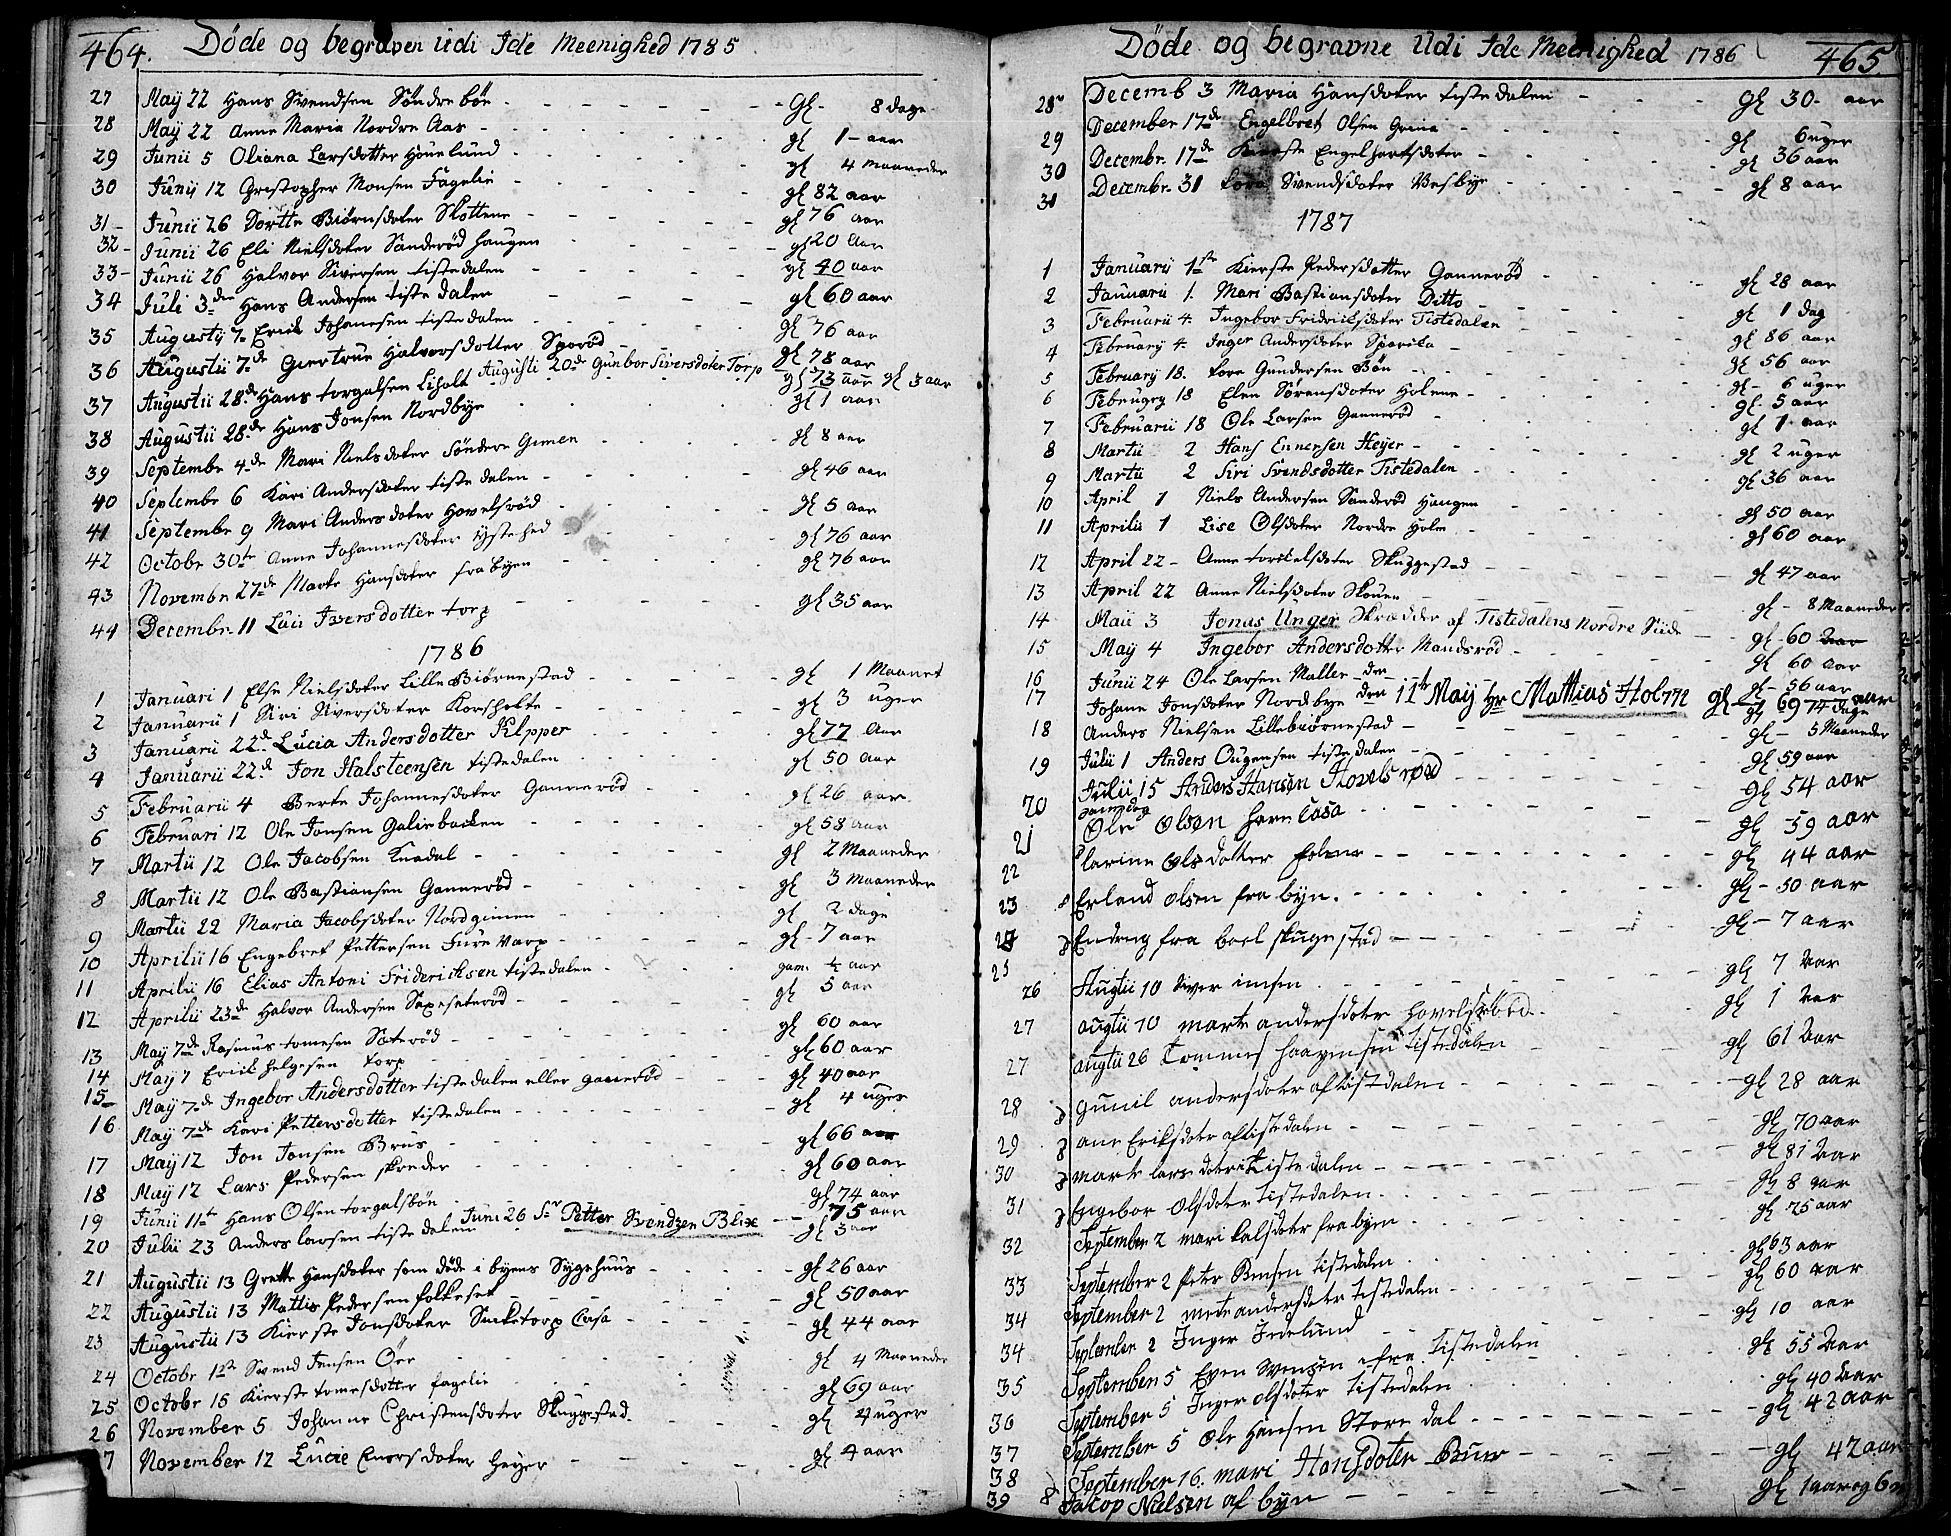 464. Døde og begraven udi Ide Meenighed 1785.
27 May 22 Hans Svendsen Søndre bøe gl 8 dage
28 May 22 Anne Maria Nordre Aas gl 1 aar
29 Junii 5 Oliana Larsdotter Houelund gl 4 maaneder
30 Junij 12 Cristopher Monsen Fagelie gl 82 aar
31 Junii 26 Dortte Biørnsdoter Skottene gl 76 aar
32 Junii 26 Eli Nielsdoter Sanderød haugen gl 20 Aar
33 Junii 26 Halvor Siversen tistedalen gl 40 aar
34 Juli 3de Hans Andersen tiste dalen gl 60 aar
35 Augusty 7 Erick Johanesen tistedalen gl 76 aar
36 Augustii 7de Giertrue Halvorsdotter Sporød gl 78 aar
Augusti 20de Gunbor Siversdoter Torp gl 3 aar
37 Augustii 28de Hans torgalsen Liholt gl 73 aar
38 Augustii 28de Hans Jonsen Nordbye gl 1 aar
39 Septembr 4de Mari Nielsdoter Søndere Gimen gl 8 aar
40 Septembr 6 Kari Andersdoter tiste dalen gl 46 aar
41 Septembr 9 Mari Anders doter Hovelsrød gl 5 aar
42 Octobr 30te Anne Johannesdoter Ystehed gl 76 aar
43 Novembr 27de Marte Hansdoter fra byen gl 76 aar
44 Decembr 11 Luci Iversdotter torp gl 35 aar
1786
1 Januari 1 Else Nielsdoter Lille Biørnestad gl 1 Maanet
2 Januarii 1 Siri Siversdoter Korsholte gl 3 uger
3 Januarii 22d Lucia Andersdotter Klepper gl 77 Aar
4 Januarii 22d Jon Halsteensen tistedalen gl 50 aar
5 Februarii 4 Berte Johannesdoter Gannerød gl 26 aar
6 Februari 12 Ole Jonsen Galiebacken gl 58 aar
7 Martii 12 Ole Jacobsen Knadal gl 2 Maaneder
8 Martii 12 Ole Bastiansen Gannerød gl 3 Maaneder
9 Martii 22 Maria Jacobsdoter Nordgimen gl 2 dage
10 Aprilii 16 Engebret Pettersen Fure Varp gl 7 aar
11 Aprilii 16 Elias Antoni Fridericksen tistedalen gam. ½ aar
12 Aprilii 23de Halvor Andersen Saxesaterød gl 5 aar
13 May 7de Rasmus tomesen Sæterød gl 60 aar
14 May 7 Erick helgesen torp gl 60 aar
15 May 7de Ingebor Andersdotter tistedalen eller gannerød gl 40 aar
16 May 7de Kari Pettersdotter tistedalen gl 4 uger
17 May 12 Jon Jonsen Brus gl 66 aar
18 May 12 Lars Pedersen skreder gl 60 aar
19 Junii 11te Hans Olsen torgalsbøn gl 74 aar
Juni 26 Sr Petter Svendzen Blix 75 aar
20 Julii 23 Anders larsen tiste dalen gl 3 aar
21 Augustii 13 Grette Hansdoter som døde i byens Sygehuus gl 26 aar
22 Augustii 13 Mattis Pedersen folkeset gl 50 aar
23 Augustii 13 Kierste Jonsdoter Sucketorp Casa gl 44 aar
24 Octobr 1ste Svend Jensen Ørr gl 4 Maaneder
25 Octobr 15 Kierste tomesdotter fagelie gl 69 aar
26 November 5 Johanne Christensdoter Skuggestad gl 4 uger
7 November 12 Lucie Enersdoter Heyer gl 4 aar
Døde og begravne udi Ide Meenighed 1786 465.
28 Decemb 3 Maria Hansdoter tistedalen gl 30 aar
29 December 17de Engelbret Olsen Grina gl 6 uger
30 Decembr. 17de Kierste Engelhartsdoter gl 36 aar
31 Decembr. 31 Lora Svendsdoter Vesbye gl 8 aar
1787
1 Januarii 1ste Kierste Pedersdotter Gannerød gl 28 aar
2 Januarii 1. Mari Bastiansdoter Ditto gl 1 dag
3 Februarii 4. Ingebor Fridricksdoter Tistedalen gl 86 aar
4 February 4. Inger Andersdoter Sparika gl 56 aar
5 February 18. Lore Gundersen Bøn gl 6 uger
6 February 18 Elen Sørensdoter Holene gl 5 aar
7 Februarii 18 Ole Larsen Gannerød gl 1 aar
8 Martii 2 Hans Ennersen Heyer gl 2 uger
9 Martii 2 Siri Svendsdotter Tistedalen gl 36 aar
10 April 1 Niels Andersen Sanderød Haugen gl 50 aar
11 Aprilii 1 Lise Olsdoter Nordre Holm gl 60 aar
12 April 22 Anne torkelsdoter Skuggestad gl 47 aar
13 April 22 Anne Nielsdoter Skouen gl 8 Maaneder
14 Maii 3 Jonas Unger Skrædder af Tistedalens Nordre Siide gl 60 Aar
15 May 4 Ingebor Andersdotter Mandsrød gl 60 aar
16 Junii 24 Ole Larsen Maller gl 56 aar
17 Johane Jonsdoter Nordbye gl 6 dage
den 11te May hr Mathias Holm gl 74 aar
18 Anders Nielsen Lillebiørnestad gl 5 Maaneder
19 Julii 1 Anders Ougensen tistedalen gl 59 aar
20 Julii 15 Anders Hansen Hovelsrød gl 54 aar
21 Ole Olsen Hovn Casa gl 59 aar
22 Clarine Ols dotter gl 44 aar
23 Erland olsen fra byn. gl 50 aar
Endreg fra boel skugestad gl 7 aar
25 gl 7 Aar
26 Augtii 10 Siver gl 1 aar
27 augtii 10 marte andersdoter hovelsrød gl 61 aar
27 augtii 26 Tommes haagensen tistedalen gl 28 aar
28 gunil andersdoter af tistedalen gl 70 aar
29 ane Eriksdoter af tistedalen gl 81 aar
30 marte larsdoter tistedalen gl 8 aar
31 Engebor olsdoter tistedalen gl 75 aar
32 September 2 mari kalsdoter fra byen gl 63 aar
33 September 2 Peter Bensen tistedalen gl 60 aar
34 September 2 mete andersdoter tistedalen gl 10 aar
34 September 2 Inger Idelund gl 55 aar
35 September 5 Even Svensen fra tistedalen gl 40 aar
36 September 5 Inger olsdoter tistedalen gl 42 aar
37 September 5 Ole Hansen Store dal gl 42 aar
38 September 16. mari Hansdoter Buer
39 Jacop Nielsen af byn gl 1 aar og 6